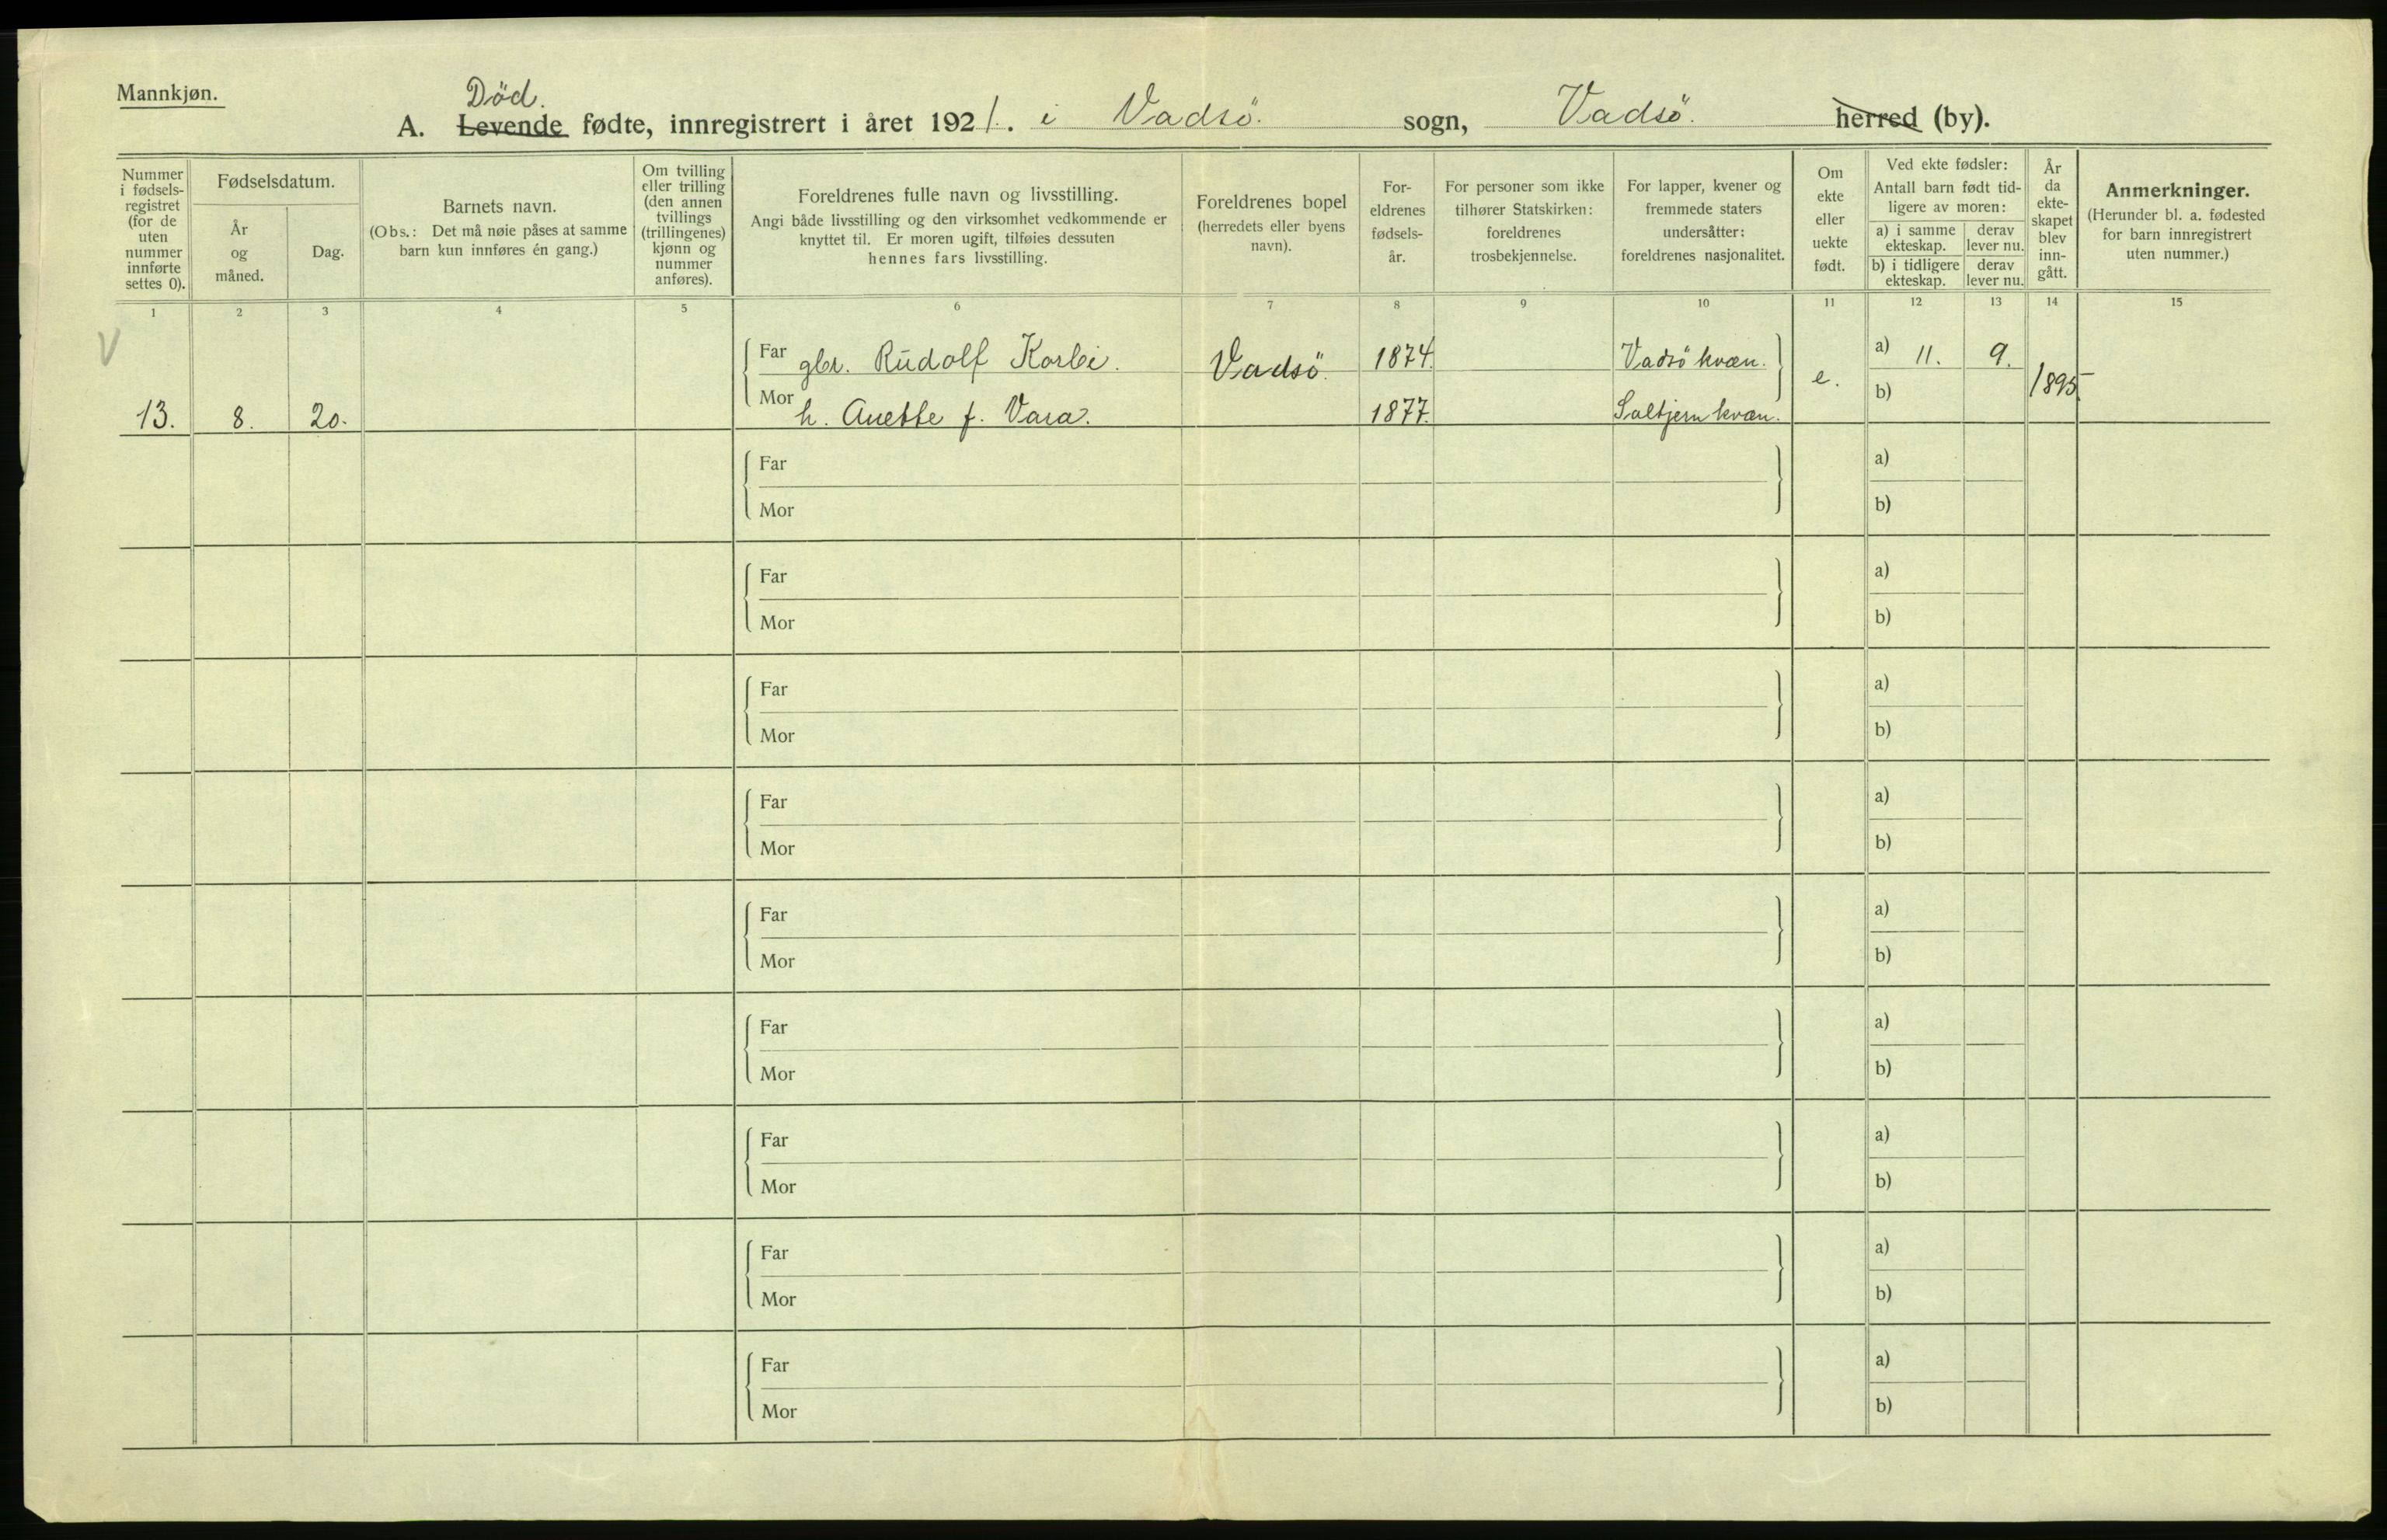 Mannkjøn.
Död.
A. Levende fødte, innregistrert i året 1921. i Vadsö. sogn, Vadsö. herred (by).
Nummer i fødsels-registret (for de uten nummer innførte settes 0).
Fødselsdatum.
År og måned.
Dag.
Barnets navn.
(Obs.: Det må nøie påses at samme barn kun innføres én gang.)
Om tvilling eller trilling (den annen tvillings (trillingenes) kjønn og nummer anføres).
Foreldrenes fulle navn og livsstilling.
Angi både livsstilling og den virksomhet vedkommende er knyttet til. Er moren ugift, tilføies dessuten hennes fars livsstilling.
Foreldrenes bopel (herredets eller byens navn).
For-eldrenes fødsels-år.
For personer som ikke tilhører Statskirken: foreldrenes trosbekjennelse.
For lapper, kvener og fremmede staters undersåtter: foreldrenes nasjonalitet.
Om ekte eller uekte født.
Ved ekte fødsler:
Antall barn født tid-ligere av moren:
a) i samme ekteskap.
derav lever nu.
b) i tidligere ekteskap.
derav lever nu.
År da ekte-skapet blev inn-gått.
Anmerkninger.
(Herunder bl. a. fødested for barn innregistrert uten nummer.)
1 2 3 4 5 6 7 8 9 10 11 12 13 14 15
V
Far gbr. Rudolf Korbi. Vadsö. 1874. Vadsö kvæn. e. a) 11. 9. 1895
13. 8. 20. Mor h. Anette f. Vara. 1877. kvæn. b)
Far a)
Mor b)
Far a)
Mor b)
Far a)
Mor b)
Far a)
Mor b)
Far a)
Mor b)
Far a)
Mor b)
Far a)
Mor b)
Far a)
Mor b)
Far a)
Mor b)